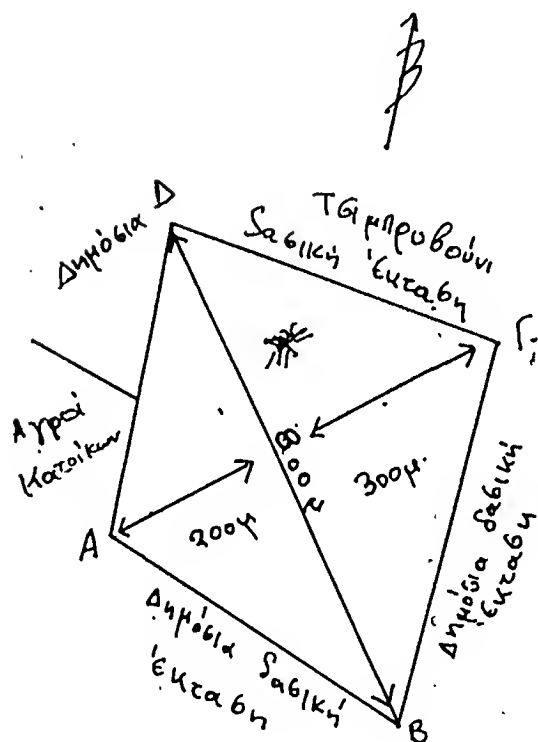 Β
Δημόσια
Δ
Τσιμπρυβούνι
δασική
έκταση
Γ
Αγροί
Κατοίκων
800μ
300μ.
200μ
Α
Δημόσια δασική
έκταση
Δημόσια δασική
έκταση
Β